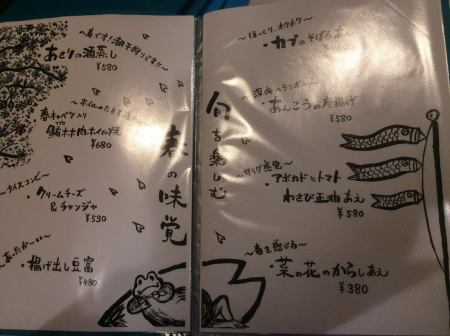 旬を楽しむ
春の味覚
～春です!潮干狩りです!!～
あさりの酒蒸し
¥580
春キャベツ入り
鮪ホホ肉ホイル焼
¥680
～ナイスコンビ～
・クリームチーズ
&チャンジャ
¥530
～あったか～い～
・揚げ出し豆富
¥480
～ほっくり、ホクホク～
・カブのそぼろあん
¥380
・あんこうの唐揚げ
¥580
・アボカドとトマト
わさび正油あえ
¥580
～春を感じる～
・菜の花のからしあえ
¥380